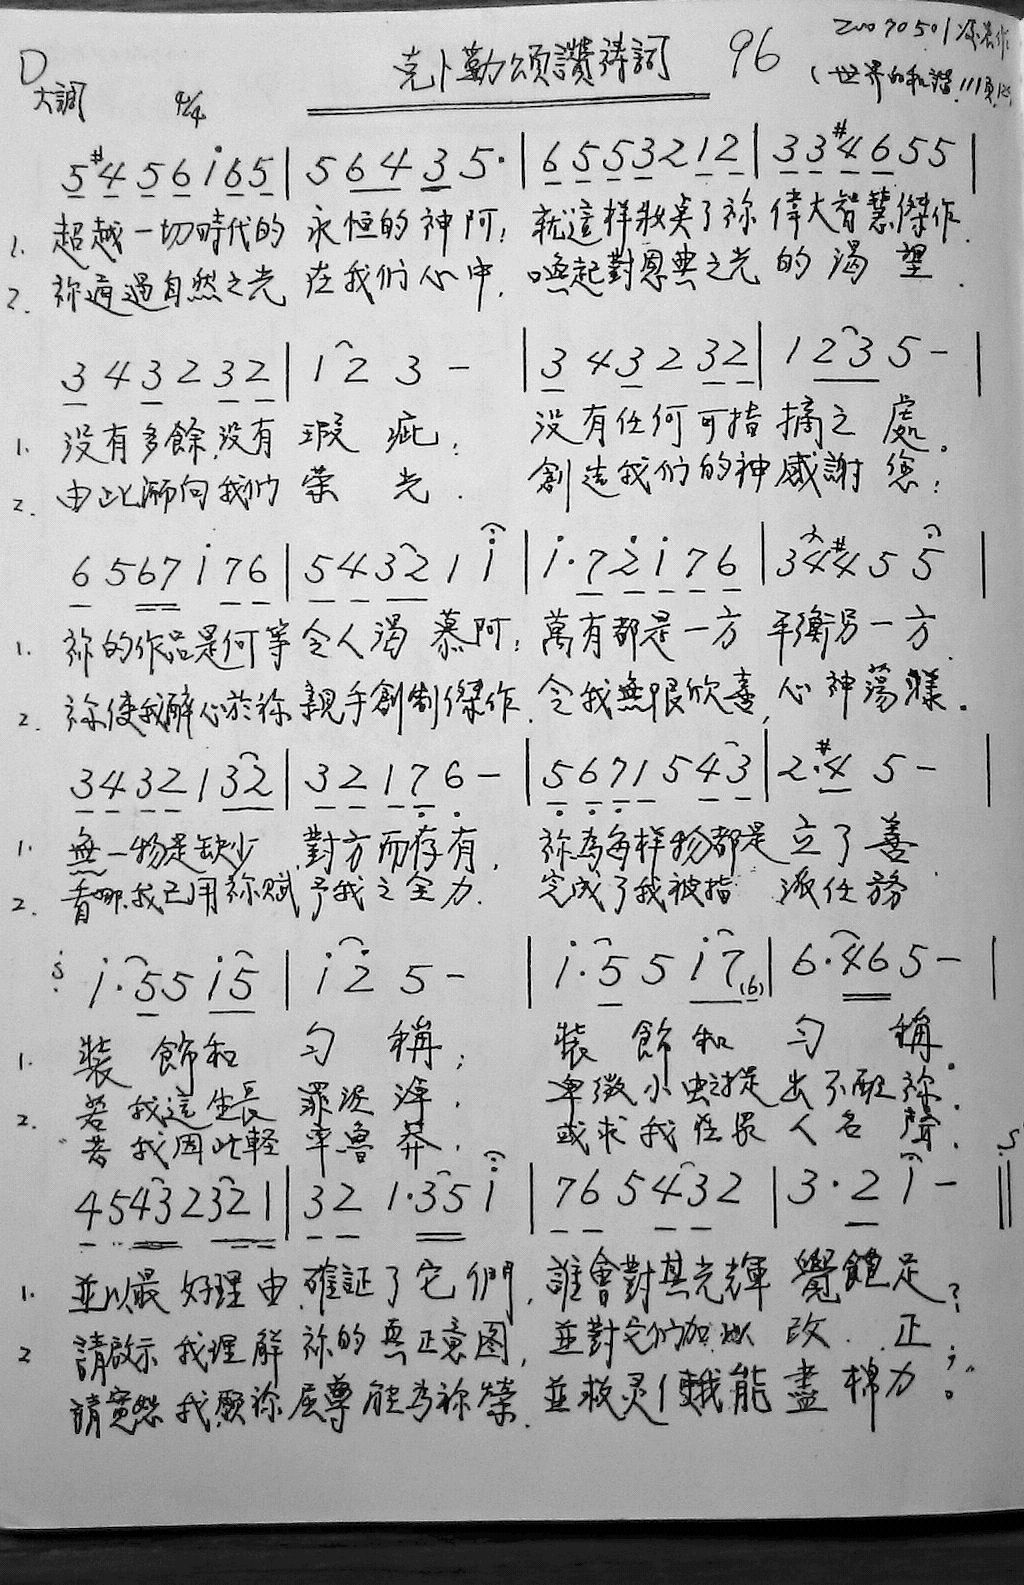 20070501
D 大調 4/4 克卜勒頌讚禱詞 96
(世界的和諧 111頁
5 #4 5 6 i 6 5 | 5 6 4 3 5 · | 6 5 5 3 2 1 2 | 3 3 #4 6 5 5 |
1. 超越一切時代的 永恒的神阿; 就這样妝美了祢 偉大智慧傑作.
2. 祢透過自然之光 在我们心中, 喚起對恩典之光 的渴望.
3 4 3 2 3 2 | 1 2 3 - | 3 4 3 2 3 2 | 1 2 3 5 - |
1. 沒有多餘,沒有 瑕疵; 沒有任何可指 摘之處.
2. 由此 向我们 榮光. 創造我们的神感謝您;
6 5 6 7 i 7 6 | 5 4 3 2 1 i | i · 7 2 i 7 6 | 3 4 #4 5 5 |
1. 祢的作品是何等 令人渴慕阿; 萬有都是一方 平衡另一方
2. 祢使我醉心於祢 親手創制傑作, 令我無限欣喜, 心神蕩漾.
3 4 3 2 1 3 2 | 3 2 1 7 6 - | 5 6 7 1 5 4 3 | 2 · #4 5 - |
1. 無一物是缺少 對方而存有, 祢為每样物都是 立了善
2. 看哪,我已用祢賦 予我之全力. 完成了我被指 派任務
S i · 5 5 i 5 | i 2 5 - | i · 5 5 i 7 (6) | 6 · 4 6 5 - |
1. 裝飾和 匀稱; 裝飾和 匀稱.
2. 若我這生長 罪 , 卑微小虫 提出不配祢.
若我因此輕 率魯莽, 或求我在眾人名聲, S
4 5 4 3 2 3 2 1 | 3 2 1 · 3 5 i | 7 6 5 4 3 2 | 3 · 2 1 - ||
1. 並以最好理由 確証了它們, 誰會對其光輝 覺飽足?
2 請啟示我理解 祢的真正意图, 並對它们加以 改正;
請寬恕我 願祢屈尊能為祢榮. 並救灵使我能 盡棉力.